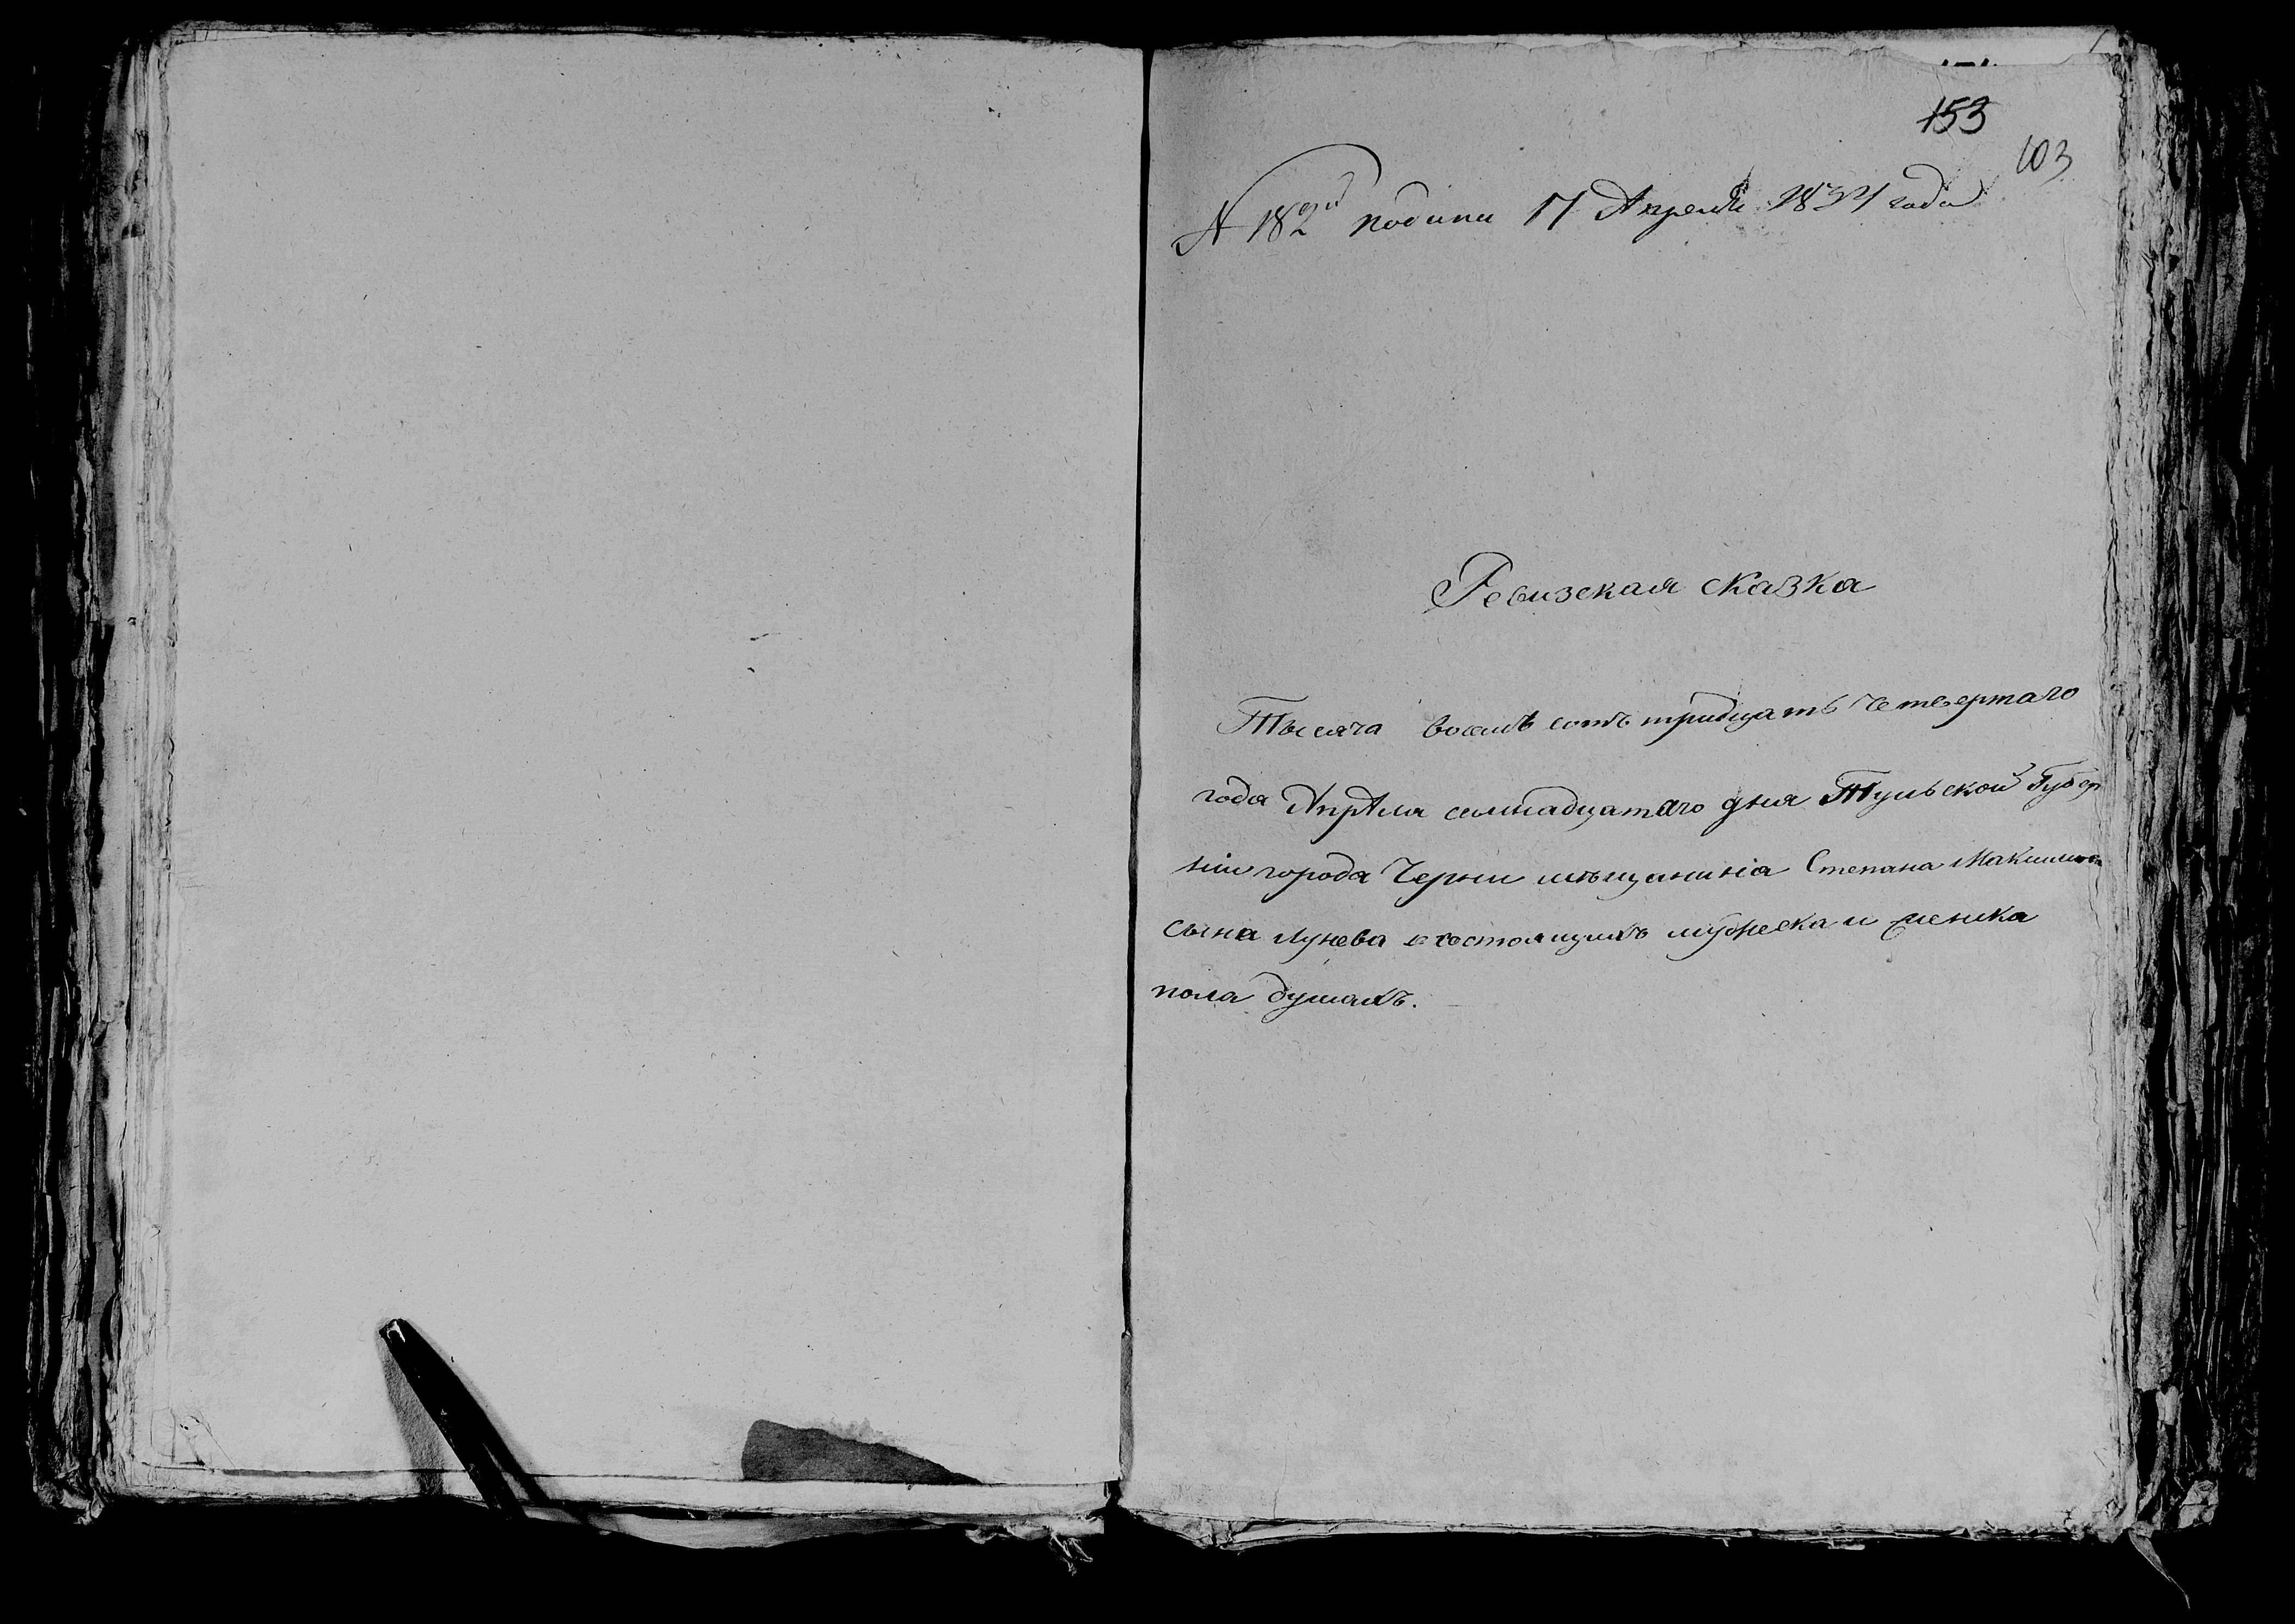 153
103
№ 182й подана 17 Апреля 1834 года
Ревизская сказка
Тысяча восемь сотъ тридцать четвертаго
года Апрѣля семнадцатаго дня Тульской Губер
ніи города Черни мѣщанина Степана Максимова
сына Лунева о состоящихъ мужеска и женска
пола душахъ.